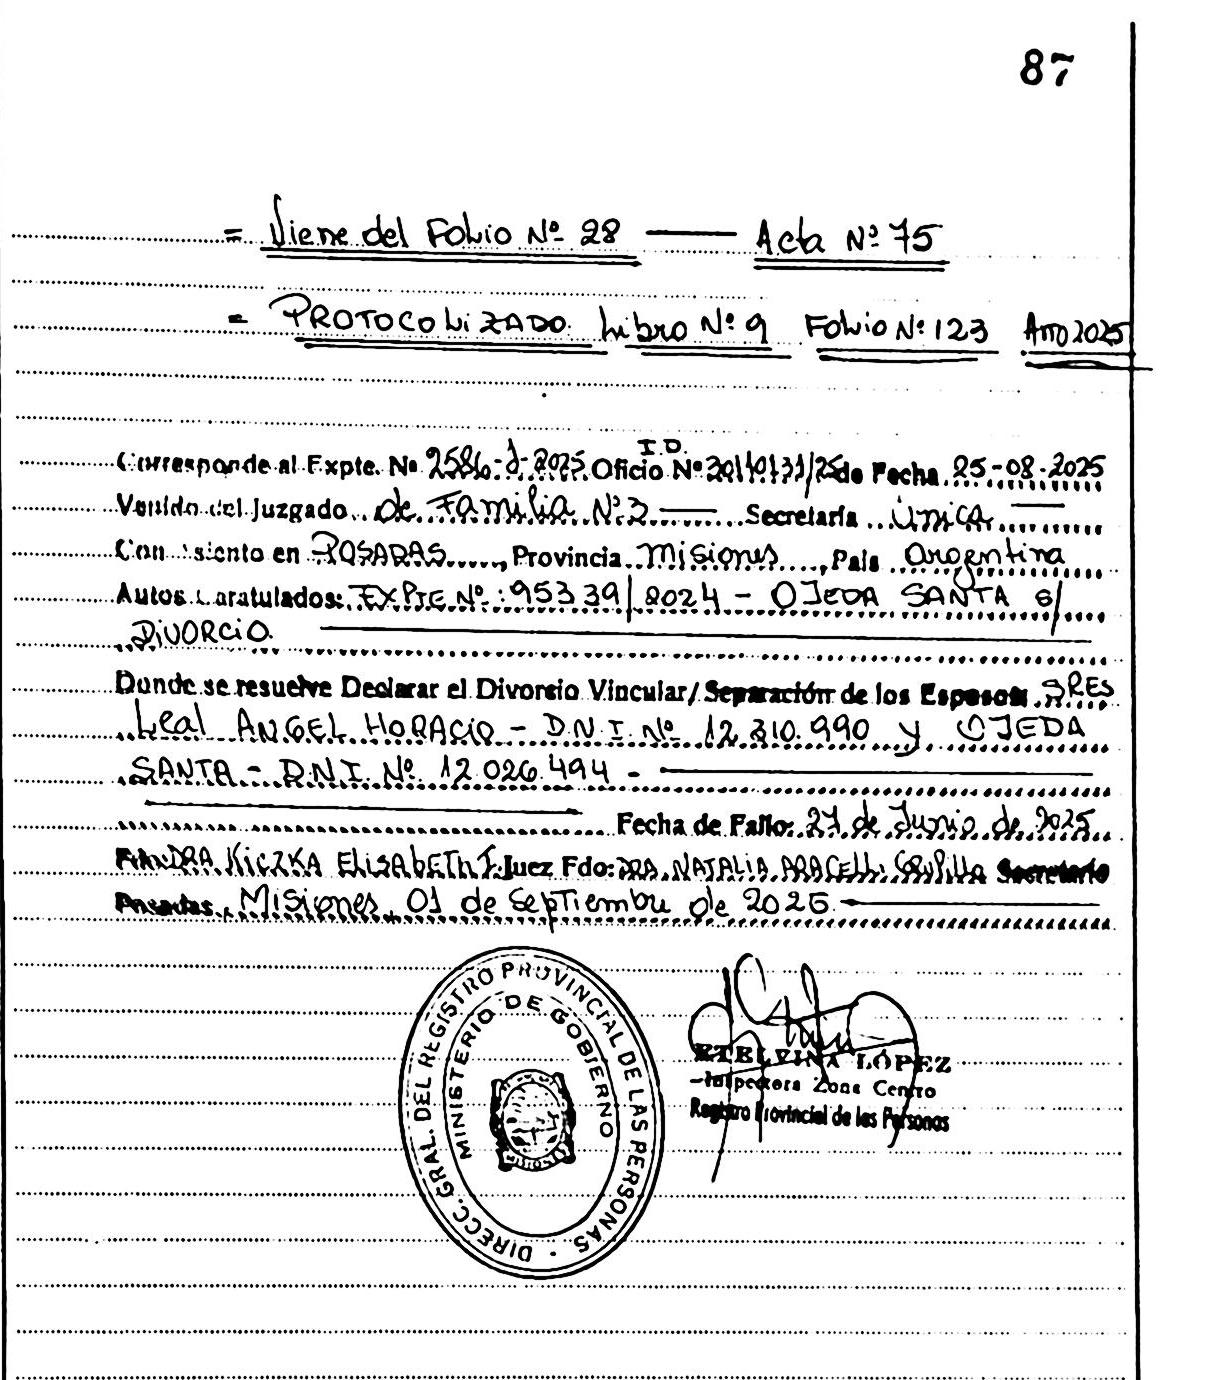 87
= Viene del Folio Nº 28 — Acta Nº 75
= PROTOCOLIZADO. Libro Nº 9 Folio Nº 123 Año 2025
I.D.
Corresponde al Expte. Nº 2586-J-2025 Oficio Nº de Fecha 25-08-2025
Venido del Juzgado de Familia Nº 3 — Secretaría Única
Con asiento en POSADAS, Provincia Misiones, País Argentina
Autos Caratulados: EXPTE Nº: 95339/2024 - OJEDA SANTA s/
DIVORCIO.
Donde se resuelve Declarar el Divorcio Vincular/ Separación de los Esposos SRES
Leal ANGEL HORACIO - D.N.I. Nº 12.310.990 y OJEDA
SANTA - D.N.I. Nº 12.026.494 -
Fecha de Fallo: 27 de Junio de 2025
Fdo: DRA KICZKA ELISABETH Juez Fdo: DRA. NATALIA ARACELI Secretario
Posadas, Misiones, 01 de Septiembre de 2025
DIRECC. GRAL. DEL REGISTRO PROVINCIAL DE LAS PERSONAS
MINISTERIO DE GOBIERNO
ETELVINA LÓPEZ
Inspectora Zona Centro
Registro Provincial de las Personas